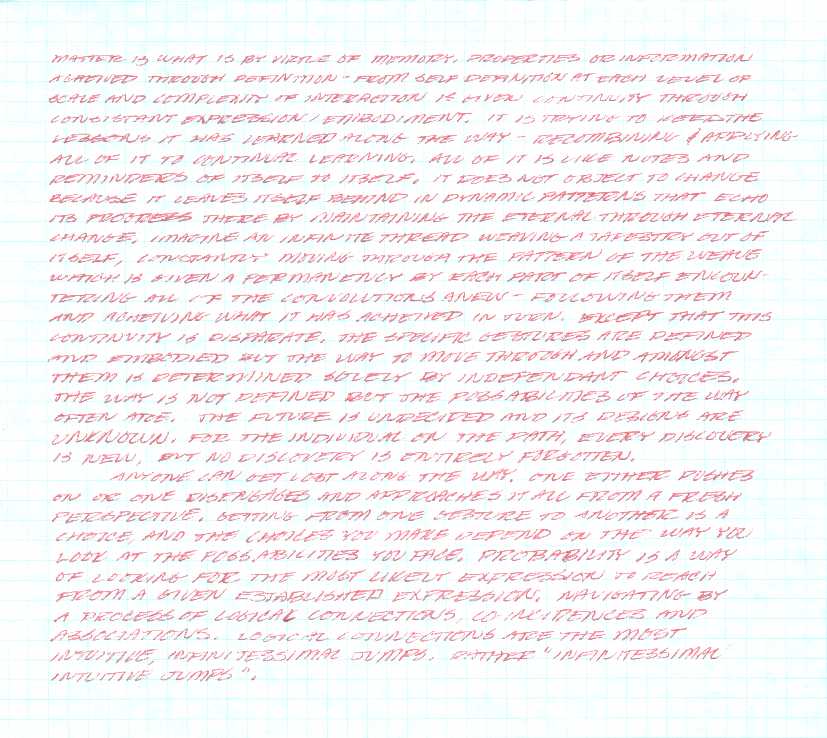 MATTER IS WHAT IS BY VIRTUE OF MEMORY. PROPERTIES OR INFORMATION
ACHEIVED THROUGH DEFINITION - FROM SELF DEFINITION AT EACH LEVEL OF
SCALE AND COMPLEXITY OF INTERACTION IS GIVEN CONTINUITY THROUGH
CONSISTANT EXPRESSION / EMBODIMENT. IT IS TRYING TO HEED THE
LESSONS IT HAS LEARNED ALONG THE WAY - RECOMBINING & APPLYING
ALL OF IT TO CONTINUAL LEARNING. ALL OF IT IS LIKE NOTES AND
REMINDERS OF ITSELF TO ITSELF. IT DOES NOT OBJECT TO CHANGE
BECAUSE IT LEAVES ITSELF BEHIND IN DYNAMIC PATTERNS THAT ECHO
ITS PROGRESS THERE BY MAINTAINING THE ETERNAL THROUGH ETERNAL
CHANGE. IMAGINE AN INFINITE THREAD WEAVING A TAPESTRY OUT OF
ITSELF, CONSTANTLY MOVING THROUGH THE PATTERN OF THE WEAVE
WHICH IS GIVEN A PERMANENCY BY EACH PART OF ITSELF ENCOUN-
TERING ALL OF THE CONVOLUTIONS ANEW - FOLLOWING THEM
AND ACHEIVING WHAT IT HAS ACHEIVED IN TURN. EXCEPT THAT THIS
CONTINUITY IS DISPARATE. THE SPECIFIC GESTURES ARE DEFINED
AND EMBODIED BUT THE WAY TO MOVE THROUGH AND AMONGST
THEM IS DETERMINED SOLELY BY INDEPENDANT CHOICES.
THE WAY IS NOT DEFINED BUT THE POSSABILITIES OF THE WAY
OFTEN ARE. THE FUTURE IS UNDECIDED AND ITS DESIGNS ARE
UNKNOWN. FOR THE INDIVIDUAL ON THE PATH, EVERY DISCOVERY
IS NEW, BUT NO DISCOVERY IS ENTIRELY FORGOTTEN.
ANYONE CAN GET LOST ALONG THE WAY. ONE EITHER PUSHES
ON OR ONE DISENGAGES AND APPROACHES IT ALL FROM A FRESH
PERSPECTIVE. GETTING FROM ONE GESTURE TO ANOTHER IS A
CHOICE, AND THE CHOICES YOU MAKE DEPEND ON THE WAY YOU
LOOK AT THE POSSABILITIES YOU FACE. PROBABILITY IS A WAY
OF LOOKING FOR THE MOST LIKELY EXPRESSION TO REACH
FROM A GIVEN ESTABLISHED EXPRESSION. NAVIGATING BY
A PROCESS OF LOGICAL CONNECTIONS, CO-INCIDENCES AND
ASSOCIATIONS. LOGICAL CONNECTIONS ARE THE MOST
INTUITIVE, INFINITESSIMAL JUMPS. RATHER "INFINITESSIMAL
INTUITIVE JUMPS".